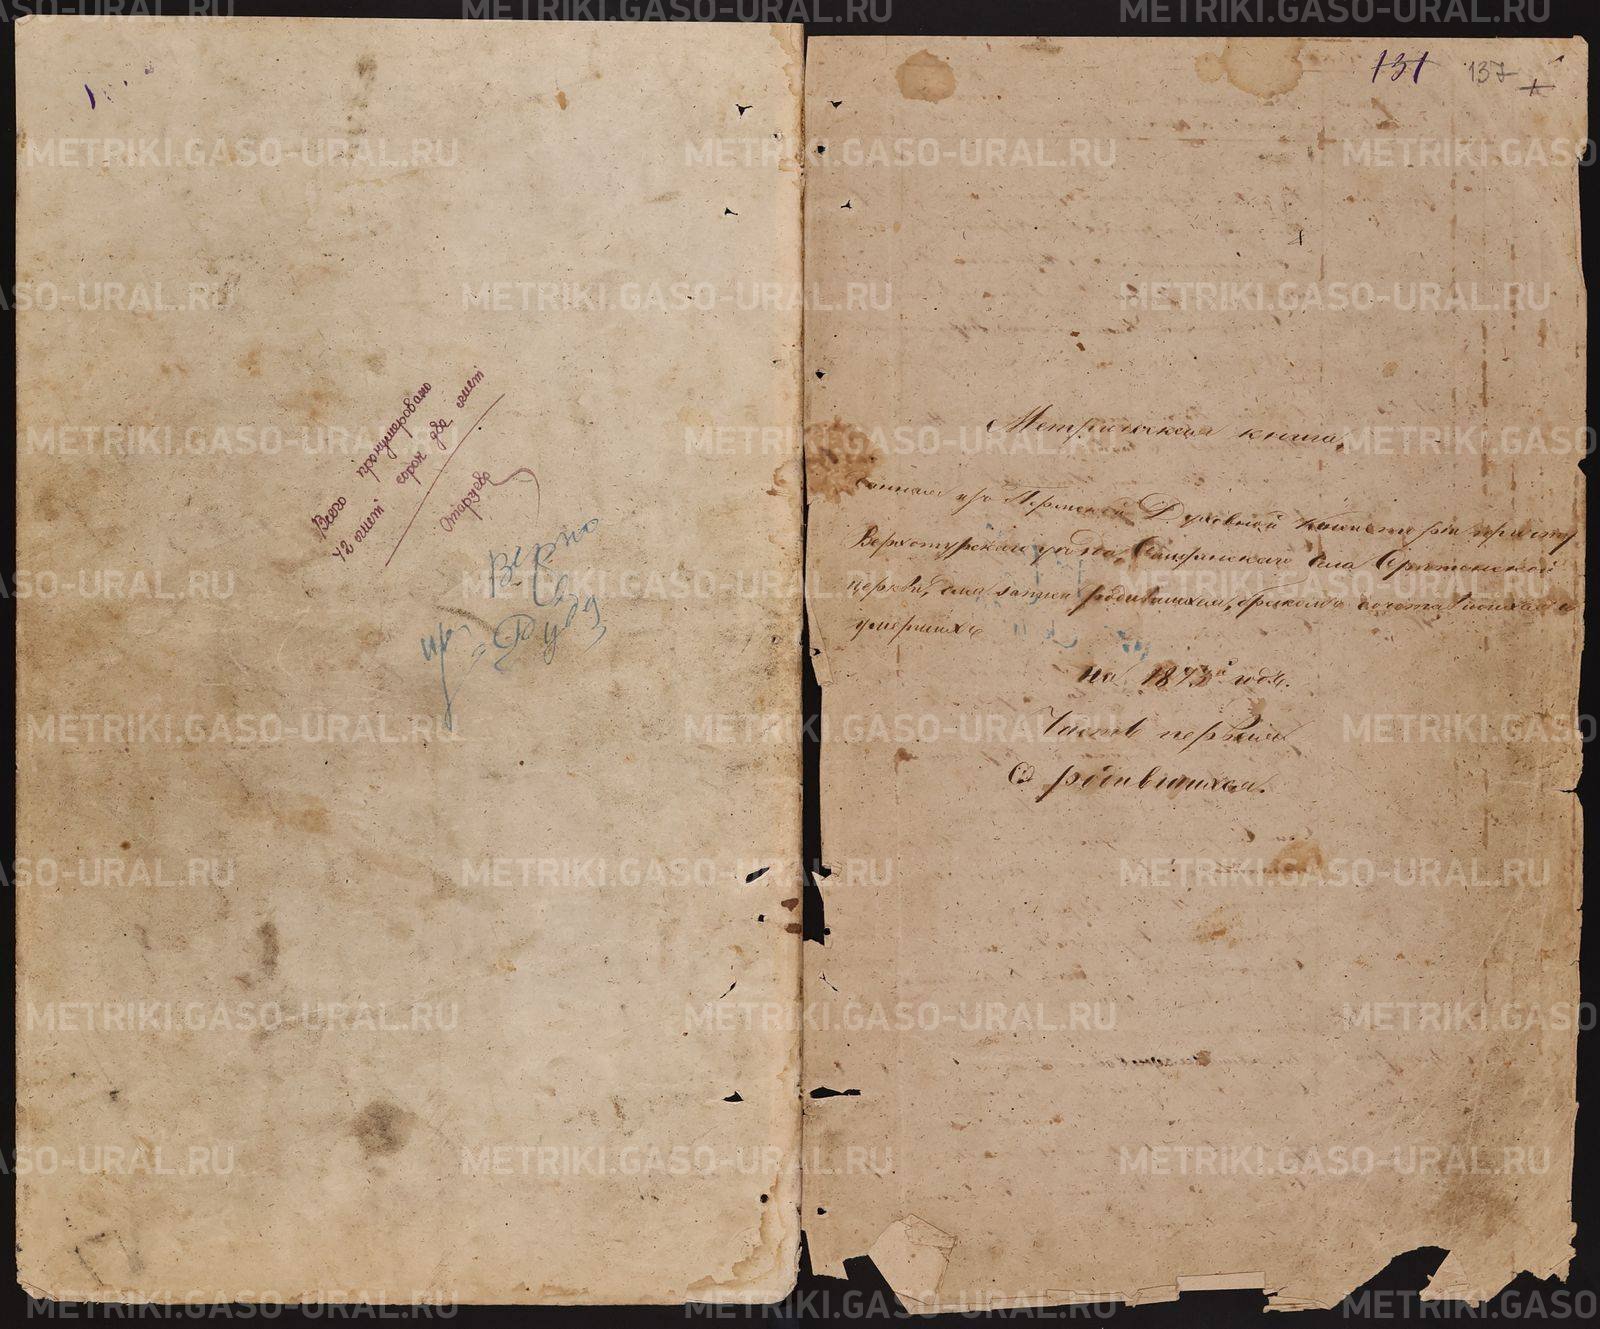 131 137
Всего пронумеровано
42 лист сорок два лист
Верно
Метрическая книга,
данная изъ Пермской Духовной Консисторіи причту
Верхотурскаго уѣзда, села Срѣтенской
церкви, для записи родившихся, бракомъ сочетавшихся и
умершихъ
на 1873й годъ.
Часть первая
О родившихся.
METRIKI.GASO-URAL.RU